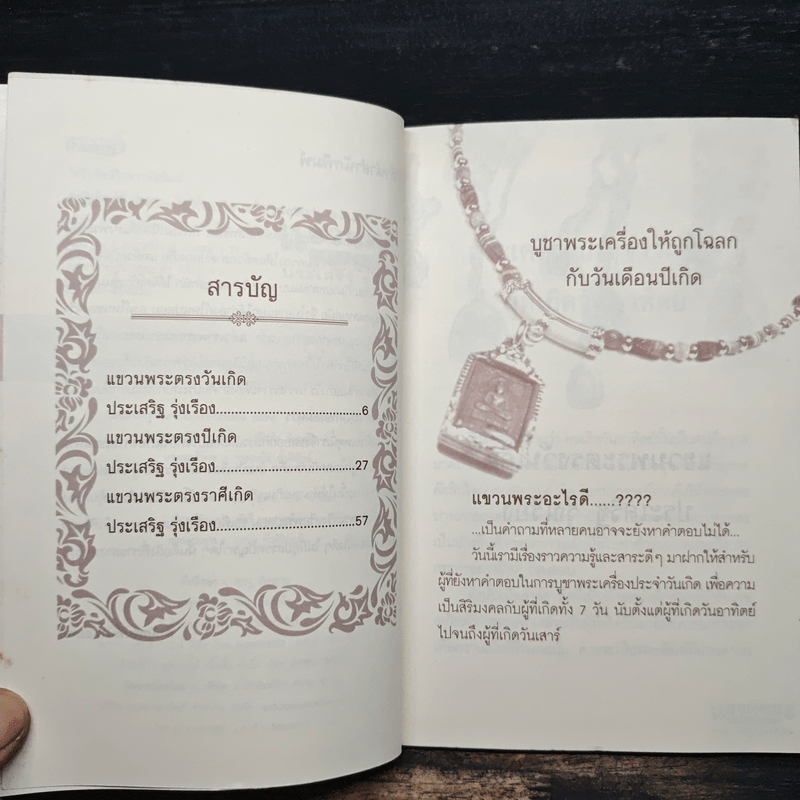 สารบัญ
แขวนพระตรงวันเกิด
ประเสริฐ รุ่งเรือง.....................................6
แขวนพระตรงปีเกิด
ประเสริฐ รุ่งเรือง...................................27
แขวนพระตรงราศีเกิด
ประเสริฐ รุ่งเรือง...................................57
บูชาพระเครื่องให้ถูกโฉลก
กับวันเดือนปีเกิด
แขวนพระอะไรดี......????
...เป็นคำถามที่หลายคนอาจจะยังหาคำตอบไม่ได้...
วันนี้เรามีเรื่องราวความรู้และสาระดีๆ มาฝากให้สำหรับ
ผู้ที่ยังหาคำตอบในการบูชาพระเครื่องประจำวันเกิด เพื่อความ
เป็นสิริมงคลกับผู้ที่เกิดทั้ง 7 วัน นับตั้งแต่ผู้ที่เกิดวันอาทิตย์
ไปจนถึงผู้ที่เกิดวันเสาร์